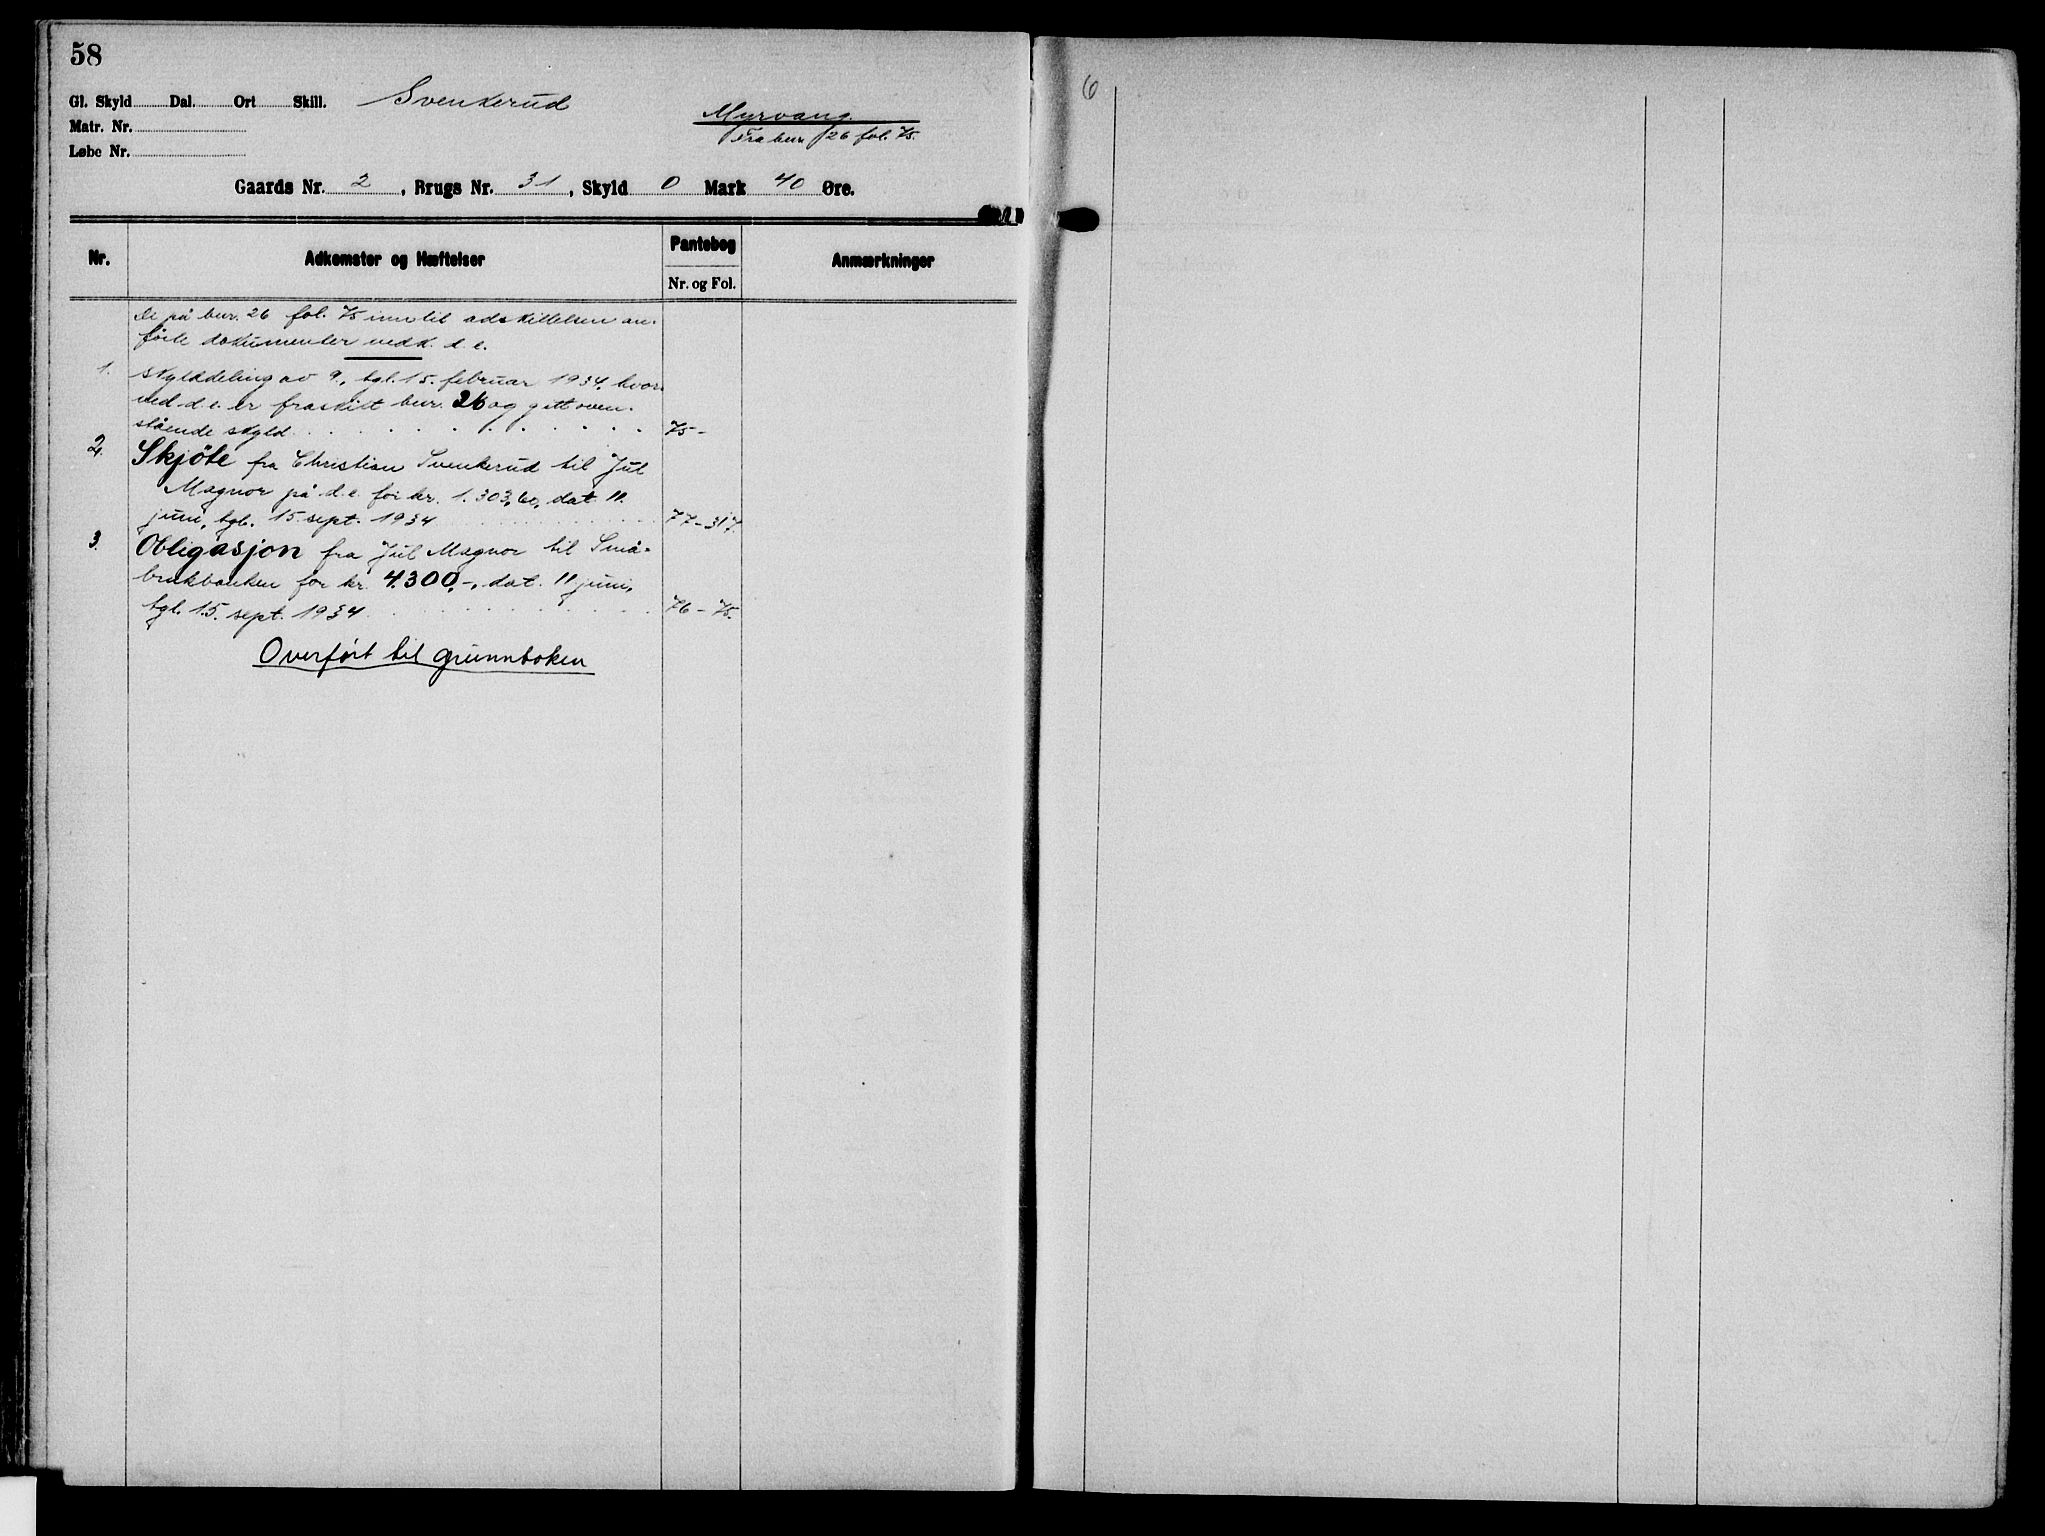 58
Gl. Skyld Dal. Ort Skill. Svenkerud
Myrvang.
Matr. Nr.
Fra bnr. 26 fol. 75.
Løbe Nr.
Gaards Nr. 2, Brugs Nr. 31, Skyld 0 Mark 40 Øre.
Nr. Adkomster og Hæftelser Pantebog Anmærkninger
Nr. og Fol.
De på bnr. 26 fol. 75 inntil adskillelsen an-
förte dokumenter vedk. d. e.
1. Skylddeling av 9., tgl. 15. februar 1934, hvor-
ved d.e. er fraskilt bnr. 26 og gitt oven-
stående skyld. 75 -
2. Skjöte fra Christian Svenkerud til Jul
Magnor på d.e. for kr. 1.303,60, dat. 11.
juni, tgl. 15. sept. 1934 77 - 317.
3. Obligasjon fra Jul Magnor til Små-
brukbanken for kr. 4.300,-, dat. 11 juni,
tgl. 15. sept. 1934. 76 - 75.
Overført til grunnboken
6